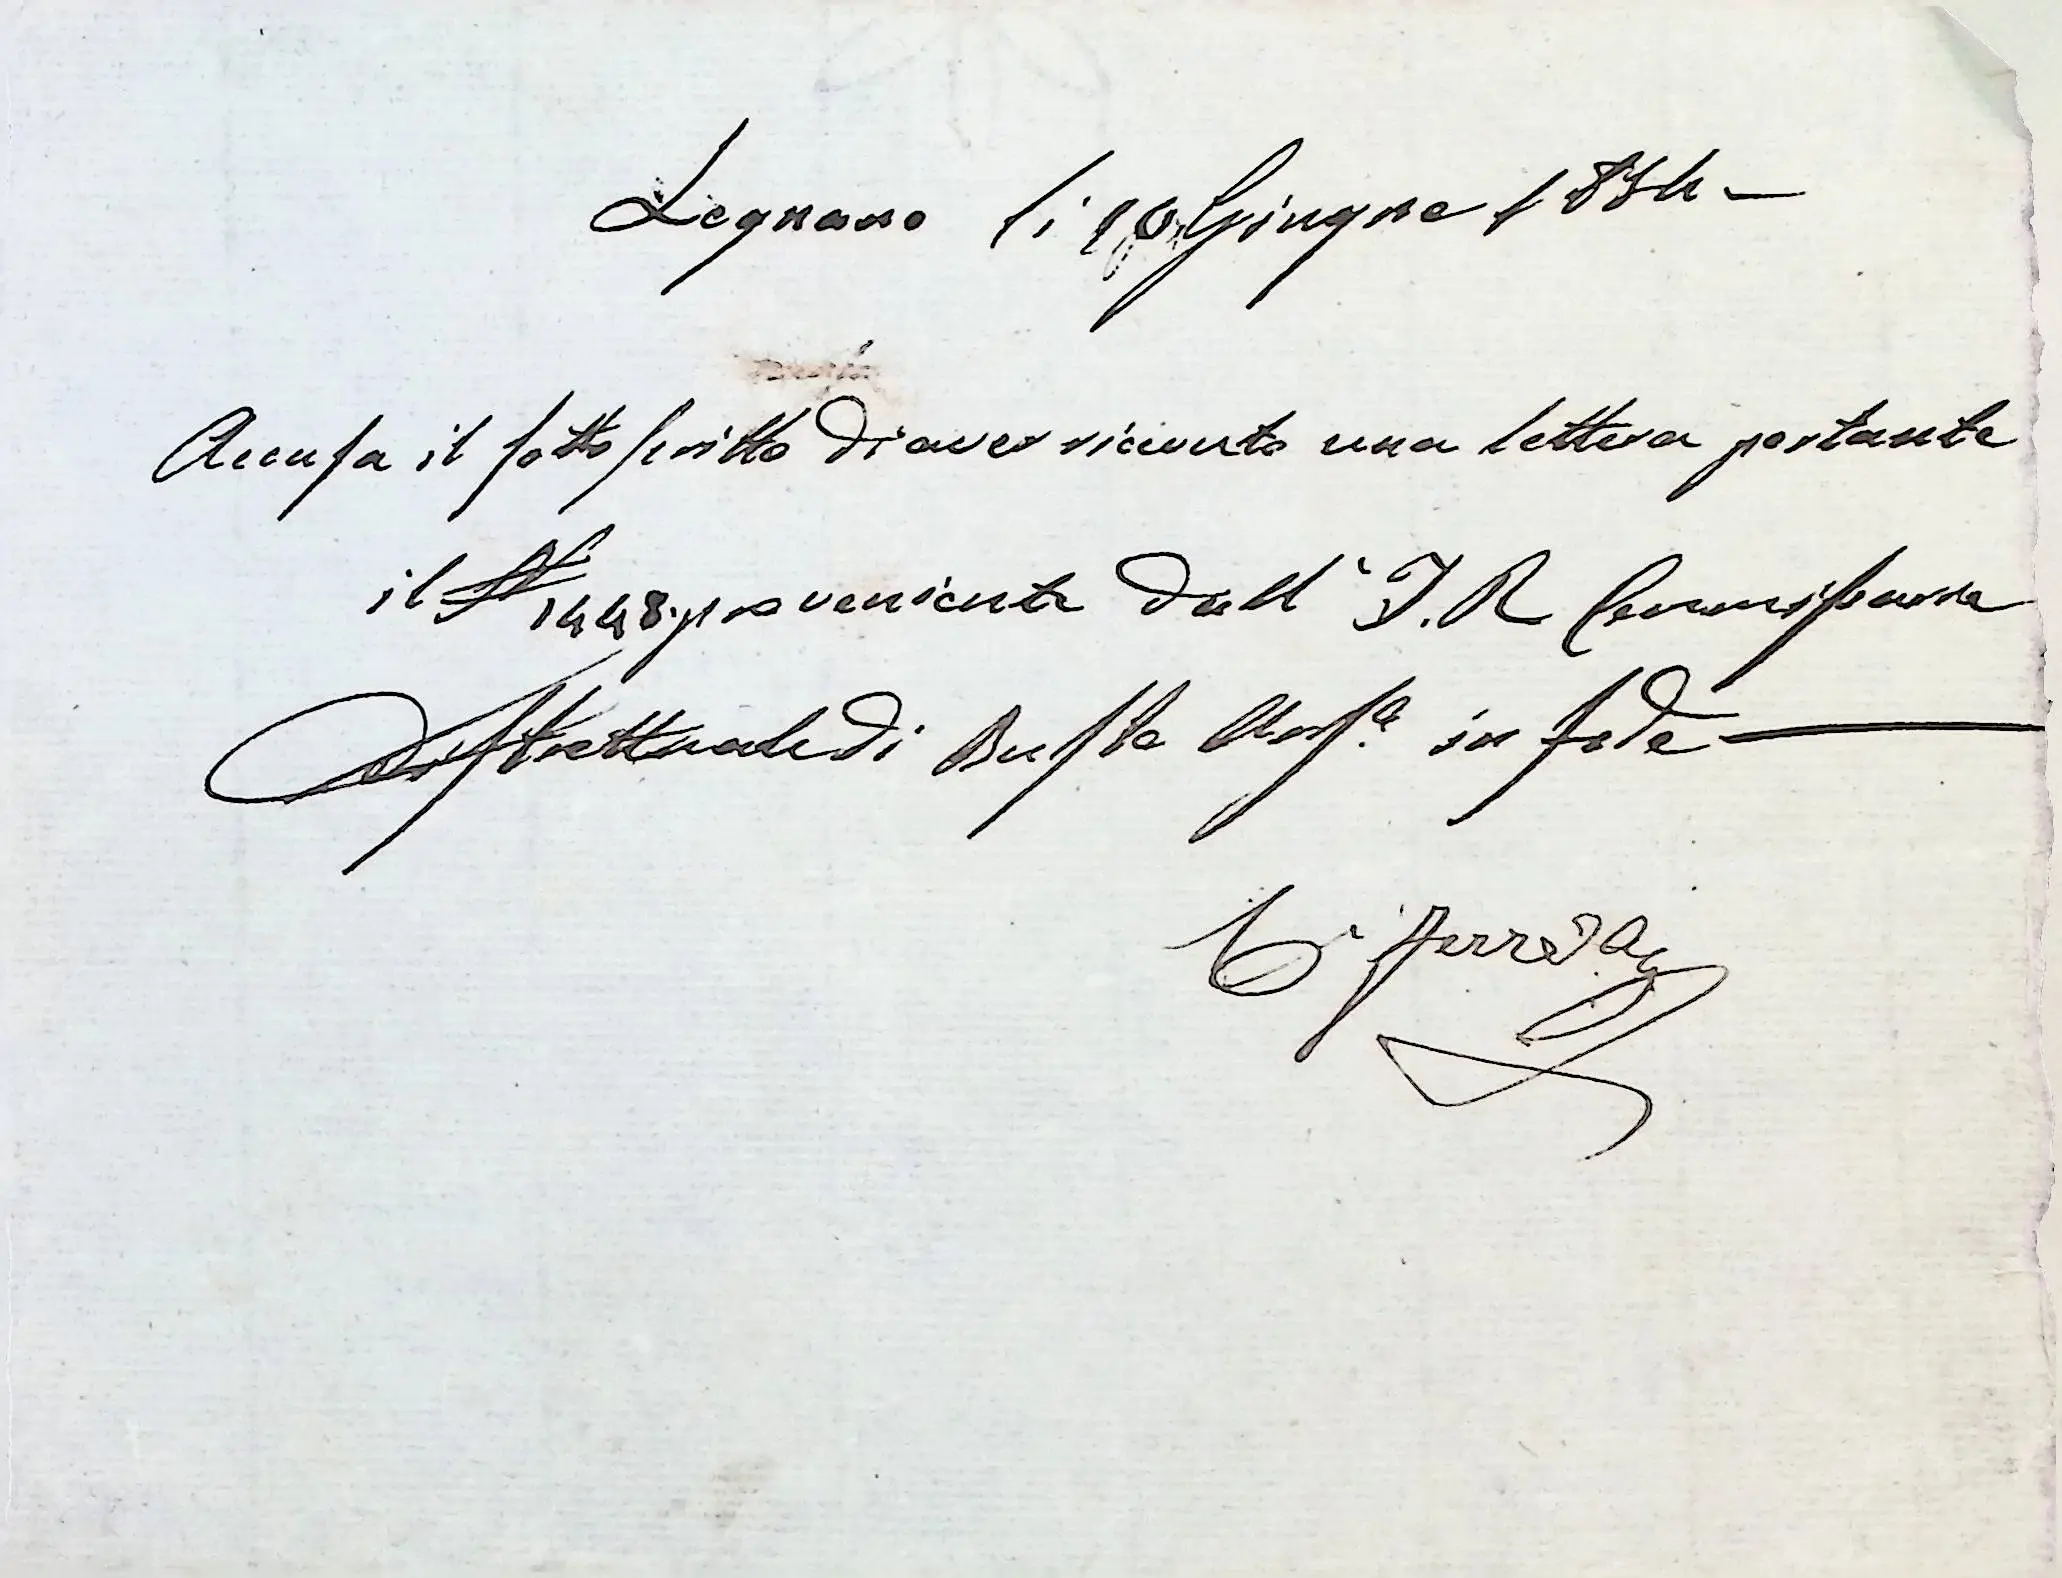 Legnano li 10 Giugne 1834 —
Accusa il sottoscritto di aver ricevuto una lettera portante
il N 1448. proveniente dall' I. R Commissaria
Distrettuale di Busto Ars.a in fede —